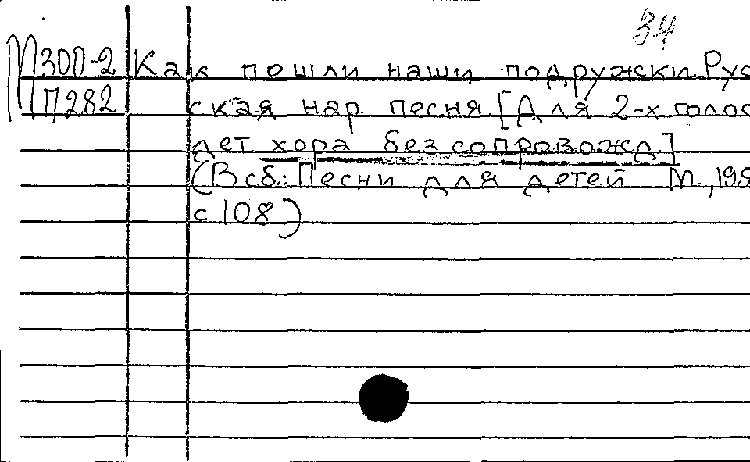 34
МЗОП-2 Как пошли наши подружки. Рус
П282 ская нар песня [Для 2-х голос
дет хора без сопровожд.]
(В сб.: Песни для детей М., 195
с 108)